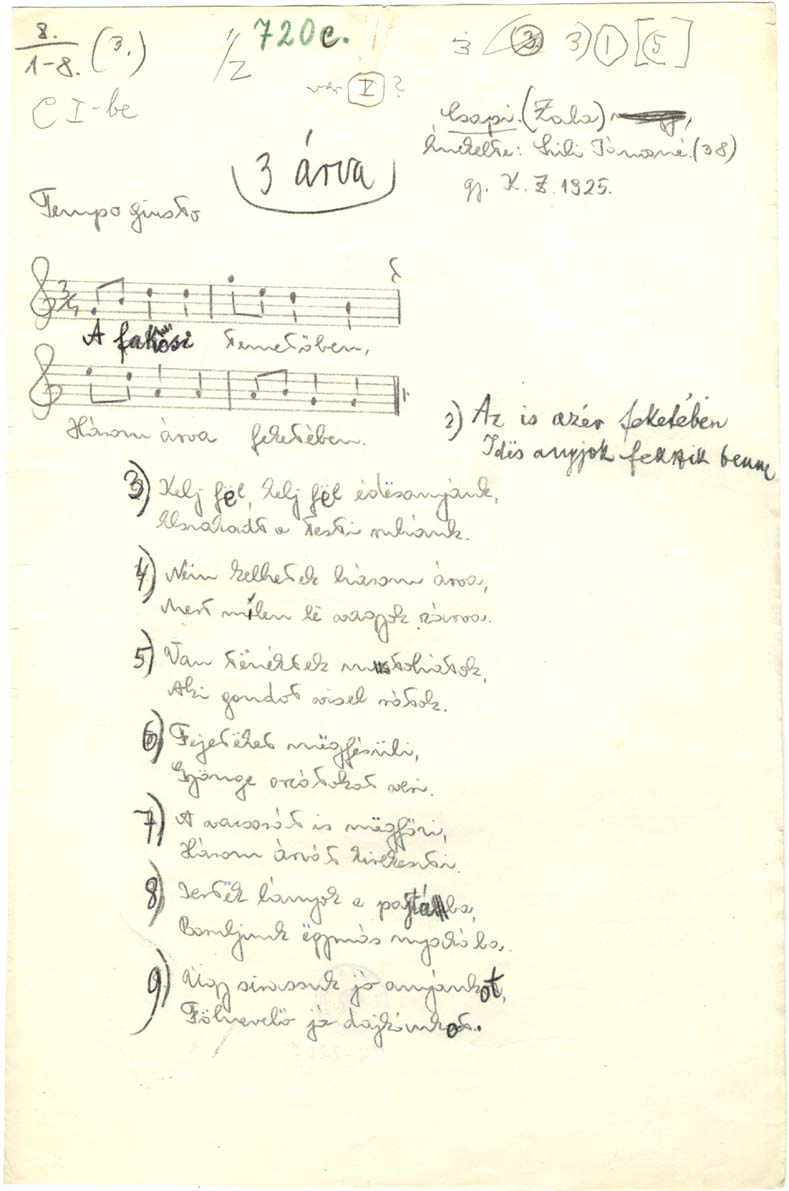 8.
1-8. (3.)
1/2
720c.
3 3) 1 [5]
C I-be
var V ?
Csapi. (Zala)
énekelte: Sili Jánosné. (38)
gy. K. Z. 1925.
3 árva
Tempo giusto
A fakósi temetőben,
Három árva feketében.
2) Az is azér feketében
Idës anyjok fekszik benne
3) Kelj fël, kelj fël édësanyánk,
Elszakadt a testi ruhánk.
4) Nëm kelhetek három árva,
Mert mélen lë vagyok zárva.
5) Van tënéktëk mostohátok,
Aki gondot visel rátok.
6) Fejetëket mëgfésüli,
Gyönge orcátokat veri.
7) A vacsorát is mëgfőzi,
Három árvát kirekeszti.
8) Jertëk lányok a pajtába,
Boruljunk ëgymás nyakába.
9) Úgy sirassuk jó anyánkot,
Fölnevelő jó dajkánkot.